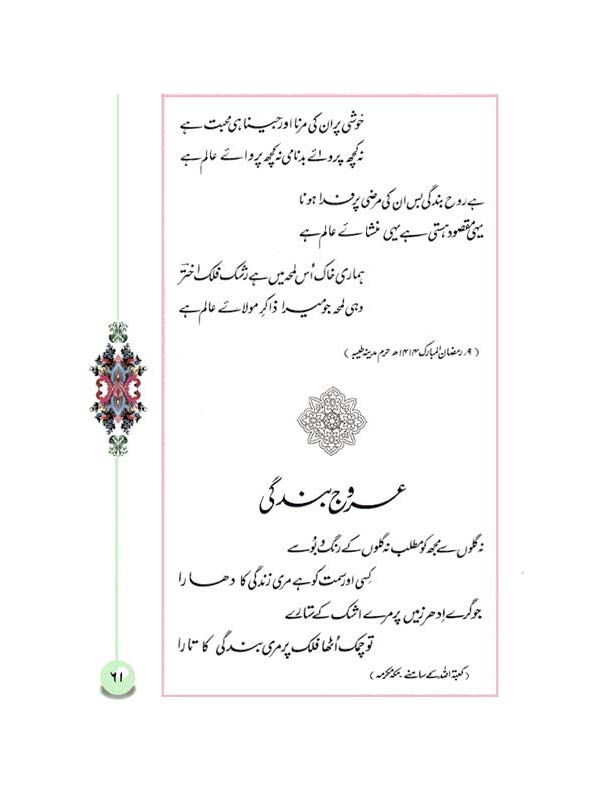 خوشی پر ان کی مرنا اور جینا ہی محبت ہے
نہ کچھ پروائے بدنامی نہ کچھ پروائے عالم ہے
ہے روح بندگی بس ان کی مرضی پر فدا ہونا
یہی مقصود ہستی ہے یہی منشائے عالم ہے
ہماری خاک اُس لمحہ میں ہے رشک فلک اختؔر
وہی لمحہ جو میرا ذاکرِ مولائے عالم ہے
(۹؍ رمضان المبارک ۱۴۱۴ھ حرم مدینہ طیبہ)
عروج بندگی
نہ گلوں سے مجھ کو مطلب نہ گلوں کے رنگ و بُو سے
کسی اور سمت کو ہے مری زندگی کا دھارا
جو گرے اِدھر زمیں پر مرے اشک کے ستارے
تو چمک اُٹھا فلک پر مری بندگی کا تارا
(کعبۃ اللہ کے سامنے۔ مکہ مکرمہ)
۶۱